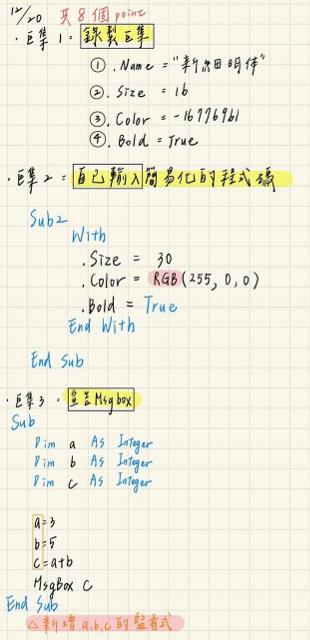 12/20 共8個point
·巨集1= 錄製巨集
① .Name = "新細明體"
② .Size = 16
③ .Color = -16776961
④ .Bold = True
·巨集2= 自己輸入簡易化的程式碼
Sub2
With
.Size = 30
.Color = RGB(255,0,0)
.Bold = True
End With
End Sub
·巨集3. 宣告Msgbox
Sub
Dim a As Integer
Dim b As Integer
Dim c As Integer
a=3
b=5
c=a+b
MsgBox c
End Sub
△新增a.b.c的監看式